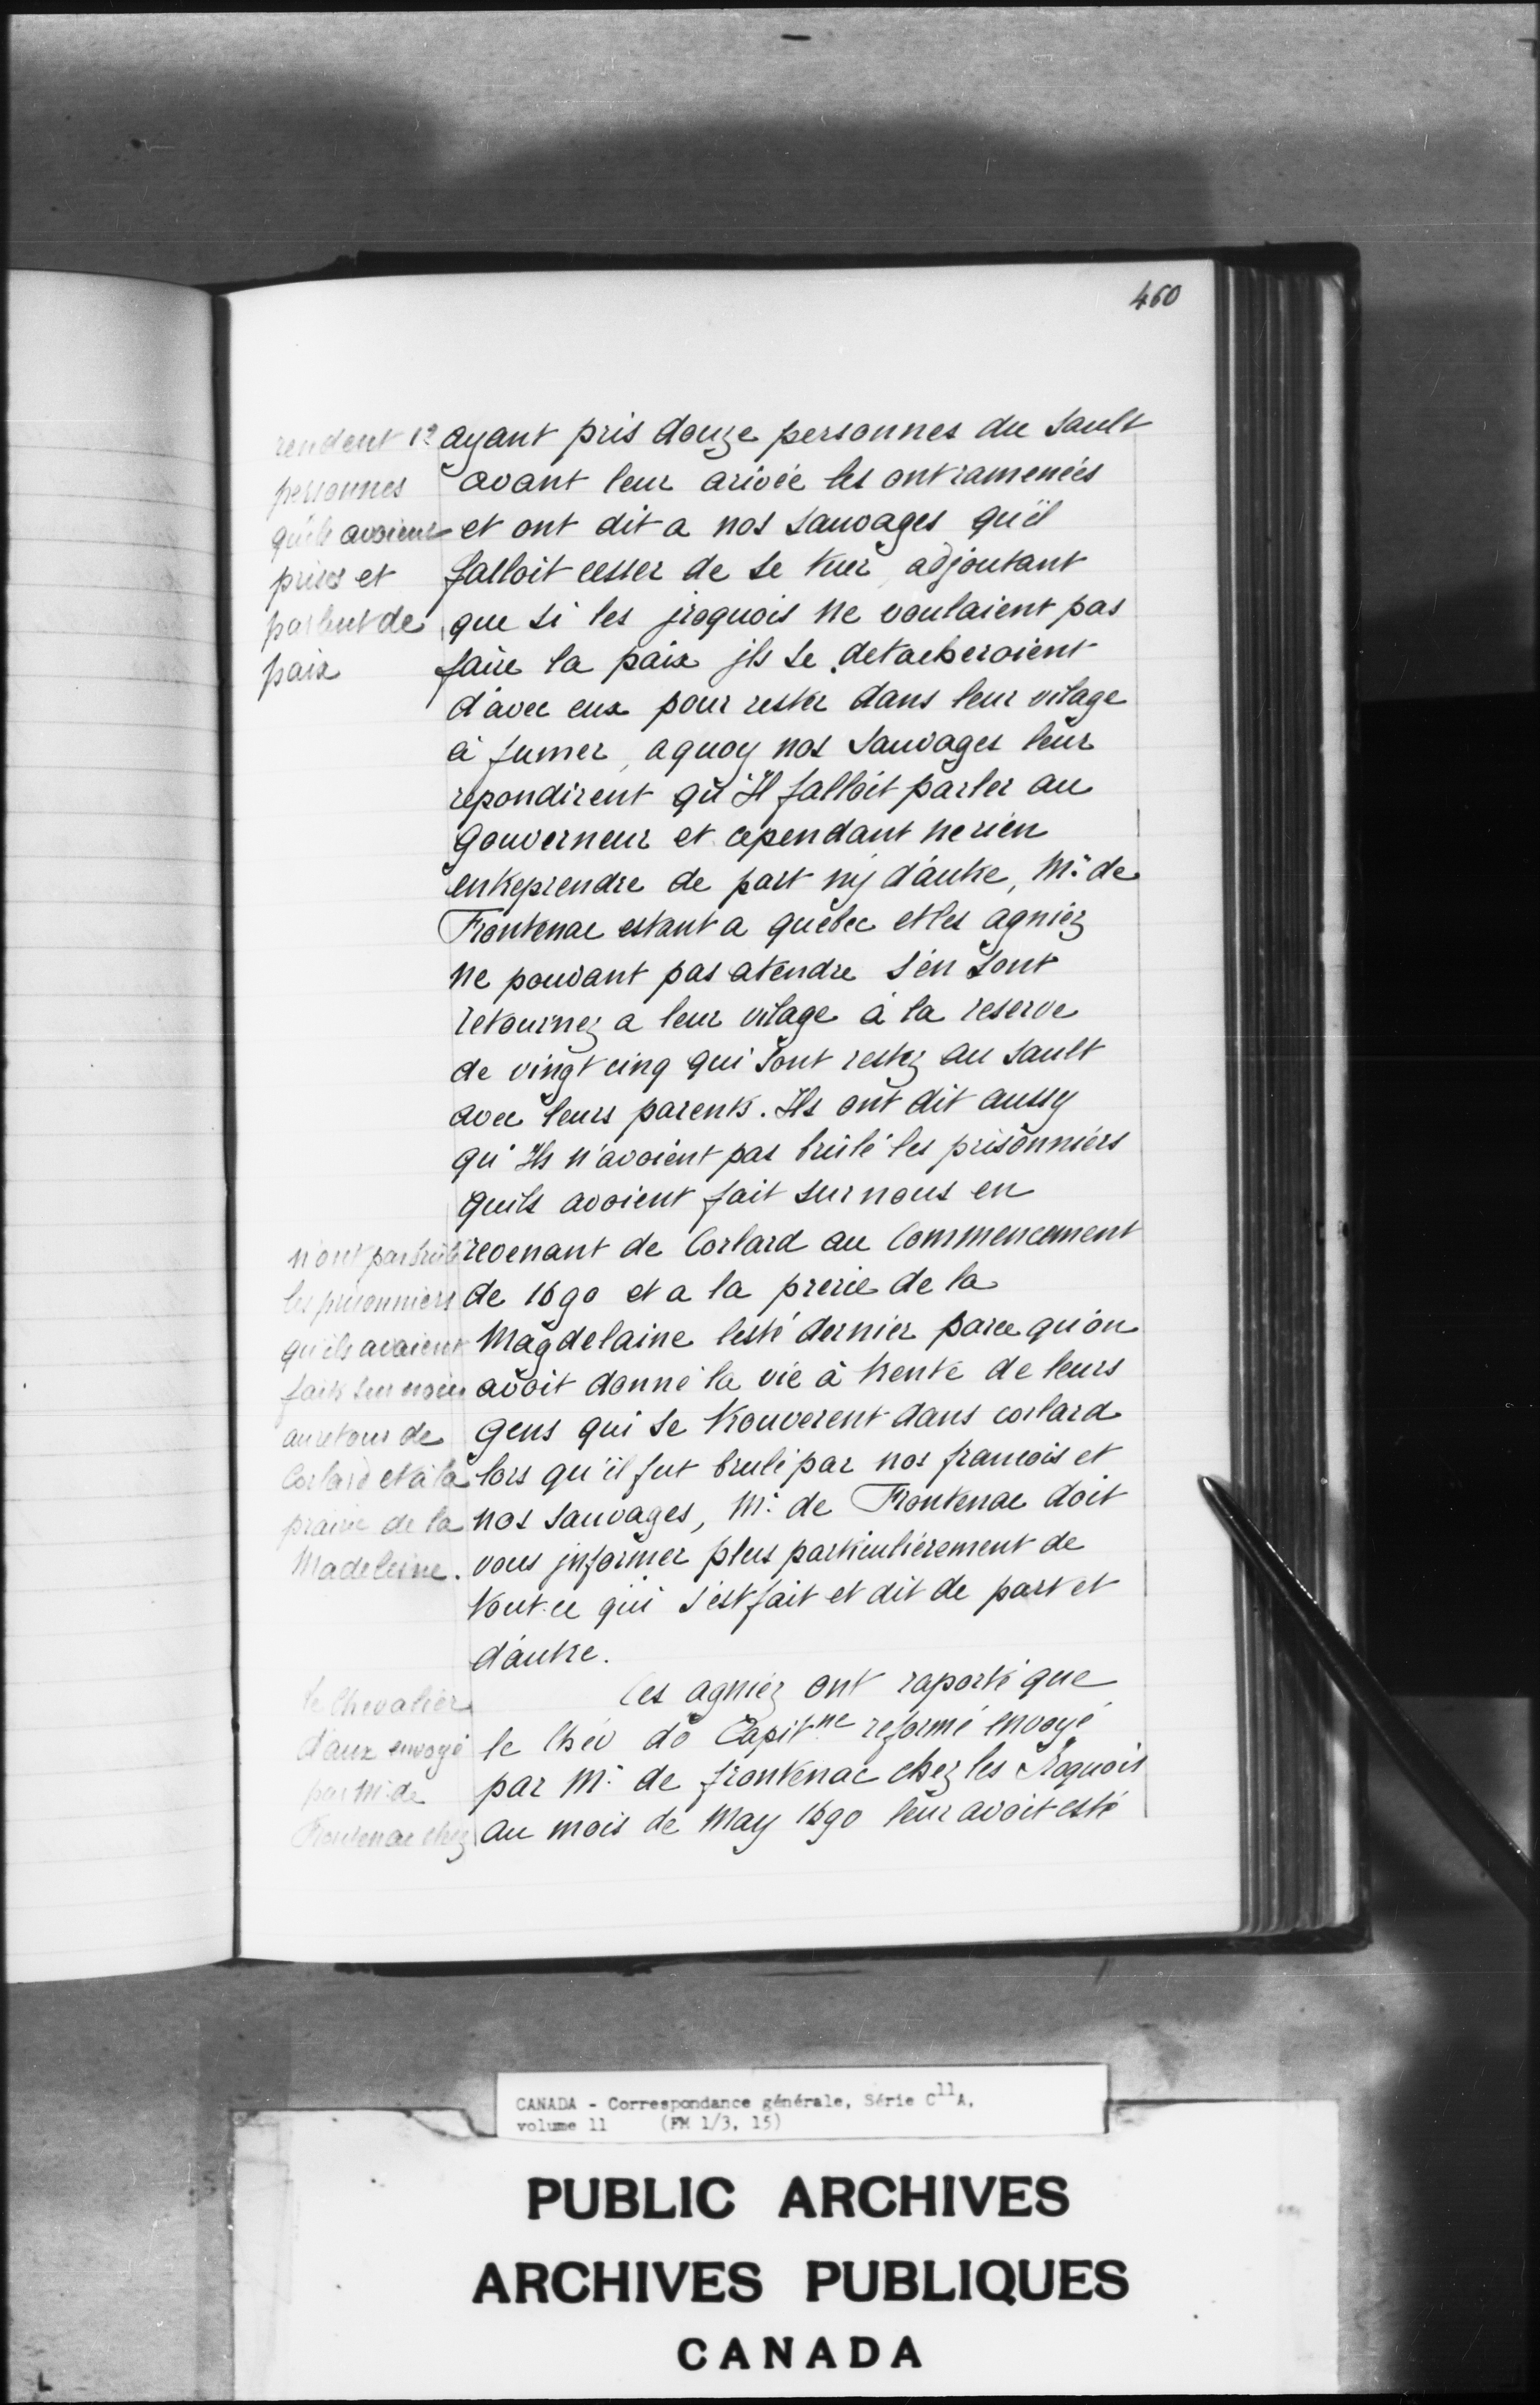 460
rendent 12
personnes
qu'ils avaient
prises et
parlent de
paix
ayant pris douze personnes du Sault
avant leur arivée les ont ramenées
et ont dit a nos sauvages qu'il
falloit cesser de se tuer, adjoutant
que si les jroquois ne voulaient pas
faire la paix jls se detacheroient
d'avec eux pour rester dans leur vilage
à fumer, aquoy nos Sauvages leur
repondirent qu'Il falloit parler au
Gouverneur et cependant ne rien
entreprendre de part ny d'autre, Mr de
Frontenac estant a quebec et les agniez
ne pouvant pas atendre s'en sont
retournez a leur vilage à la reserve
de vingt cinq qui sont restez au sault
avec leurs parents. Ils ont dit aussy
qu'Ils n'avoient pas brûlé les prisonniers
quils avoient fait sur nous en
revenant de Corlard au Commencement
de 1690 et a la prerie de la
Magdelaine lesté dernier parce qu'on
avoit donné la vie à trente de leurs
gens qui se trouverent dans corlard
lors qu'il fut brulé par nos francois et
nos sauvages, Mr de Frontenac doit
vous jnformer plus particulièrement de
tout ce qui s'est fait et dit de part et
d'autre.
n'ont pas brûlé
les prisonniers
qu'ils avaient
faits sur nous
au retour de
Corlard et à la
prairie de la
Madeleine.
Ces agniez ont raporté que
le Chev do Capitne reformé envoyé
par Mr de frontenac chez les Iroquois
au mois de May 1690 leur avoit esté
le Chevalier
d'aux envoyé
par Mr de
Frontenac chez
CANADA - Correspondance générale, Série C11A,
volume 11 (FM 1/3, 15)
PUBLIC ARCHIVES
ARCHIVES PUBLIQUES
CANADA
L